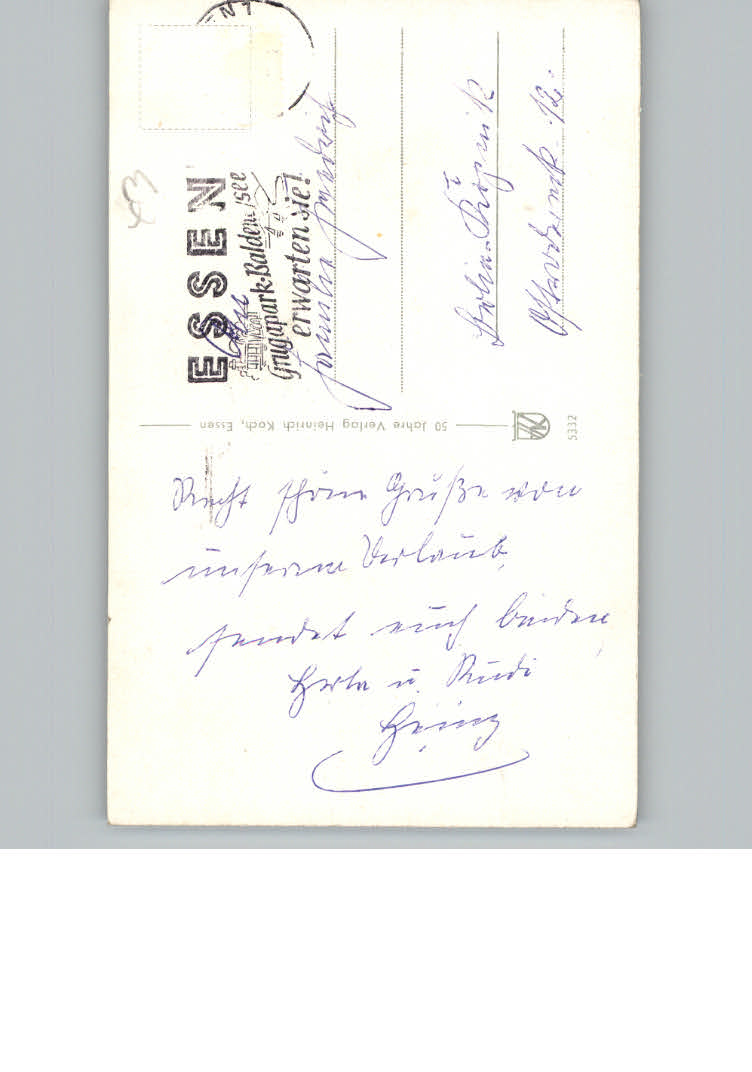 ESSEN
Grugapark·Baldeneysee
erwarten Sie!
An
Familie
Berlin-Köpenick
12.
50 Jahre Verlag Heinrich Koch, Essen
5332
Recht schöne Grüße von
unserem Urlaub,
sendet euch beiden
Herta u. Rudi
Heinz